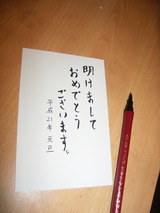 明けまして
おめでとう
ございます。
平成21年 元旦